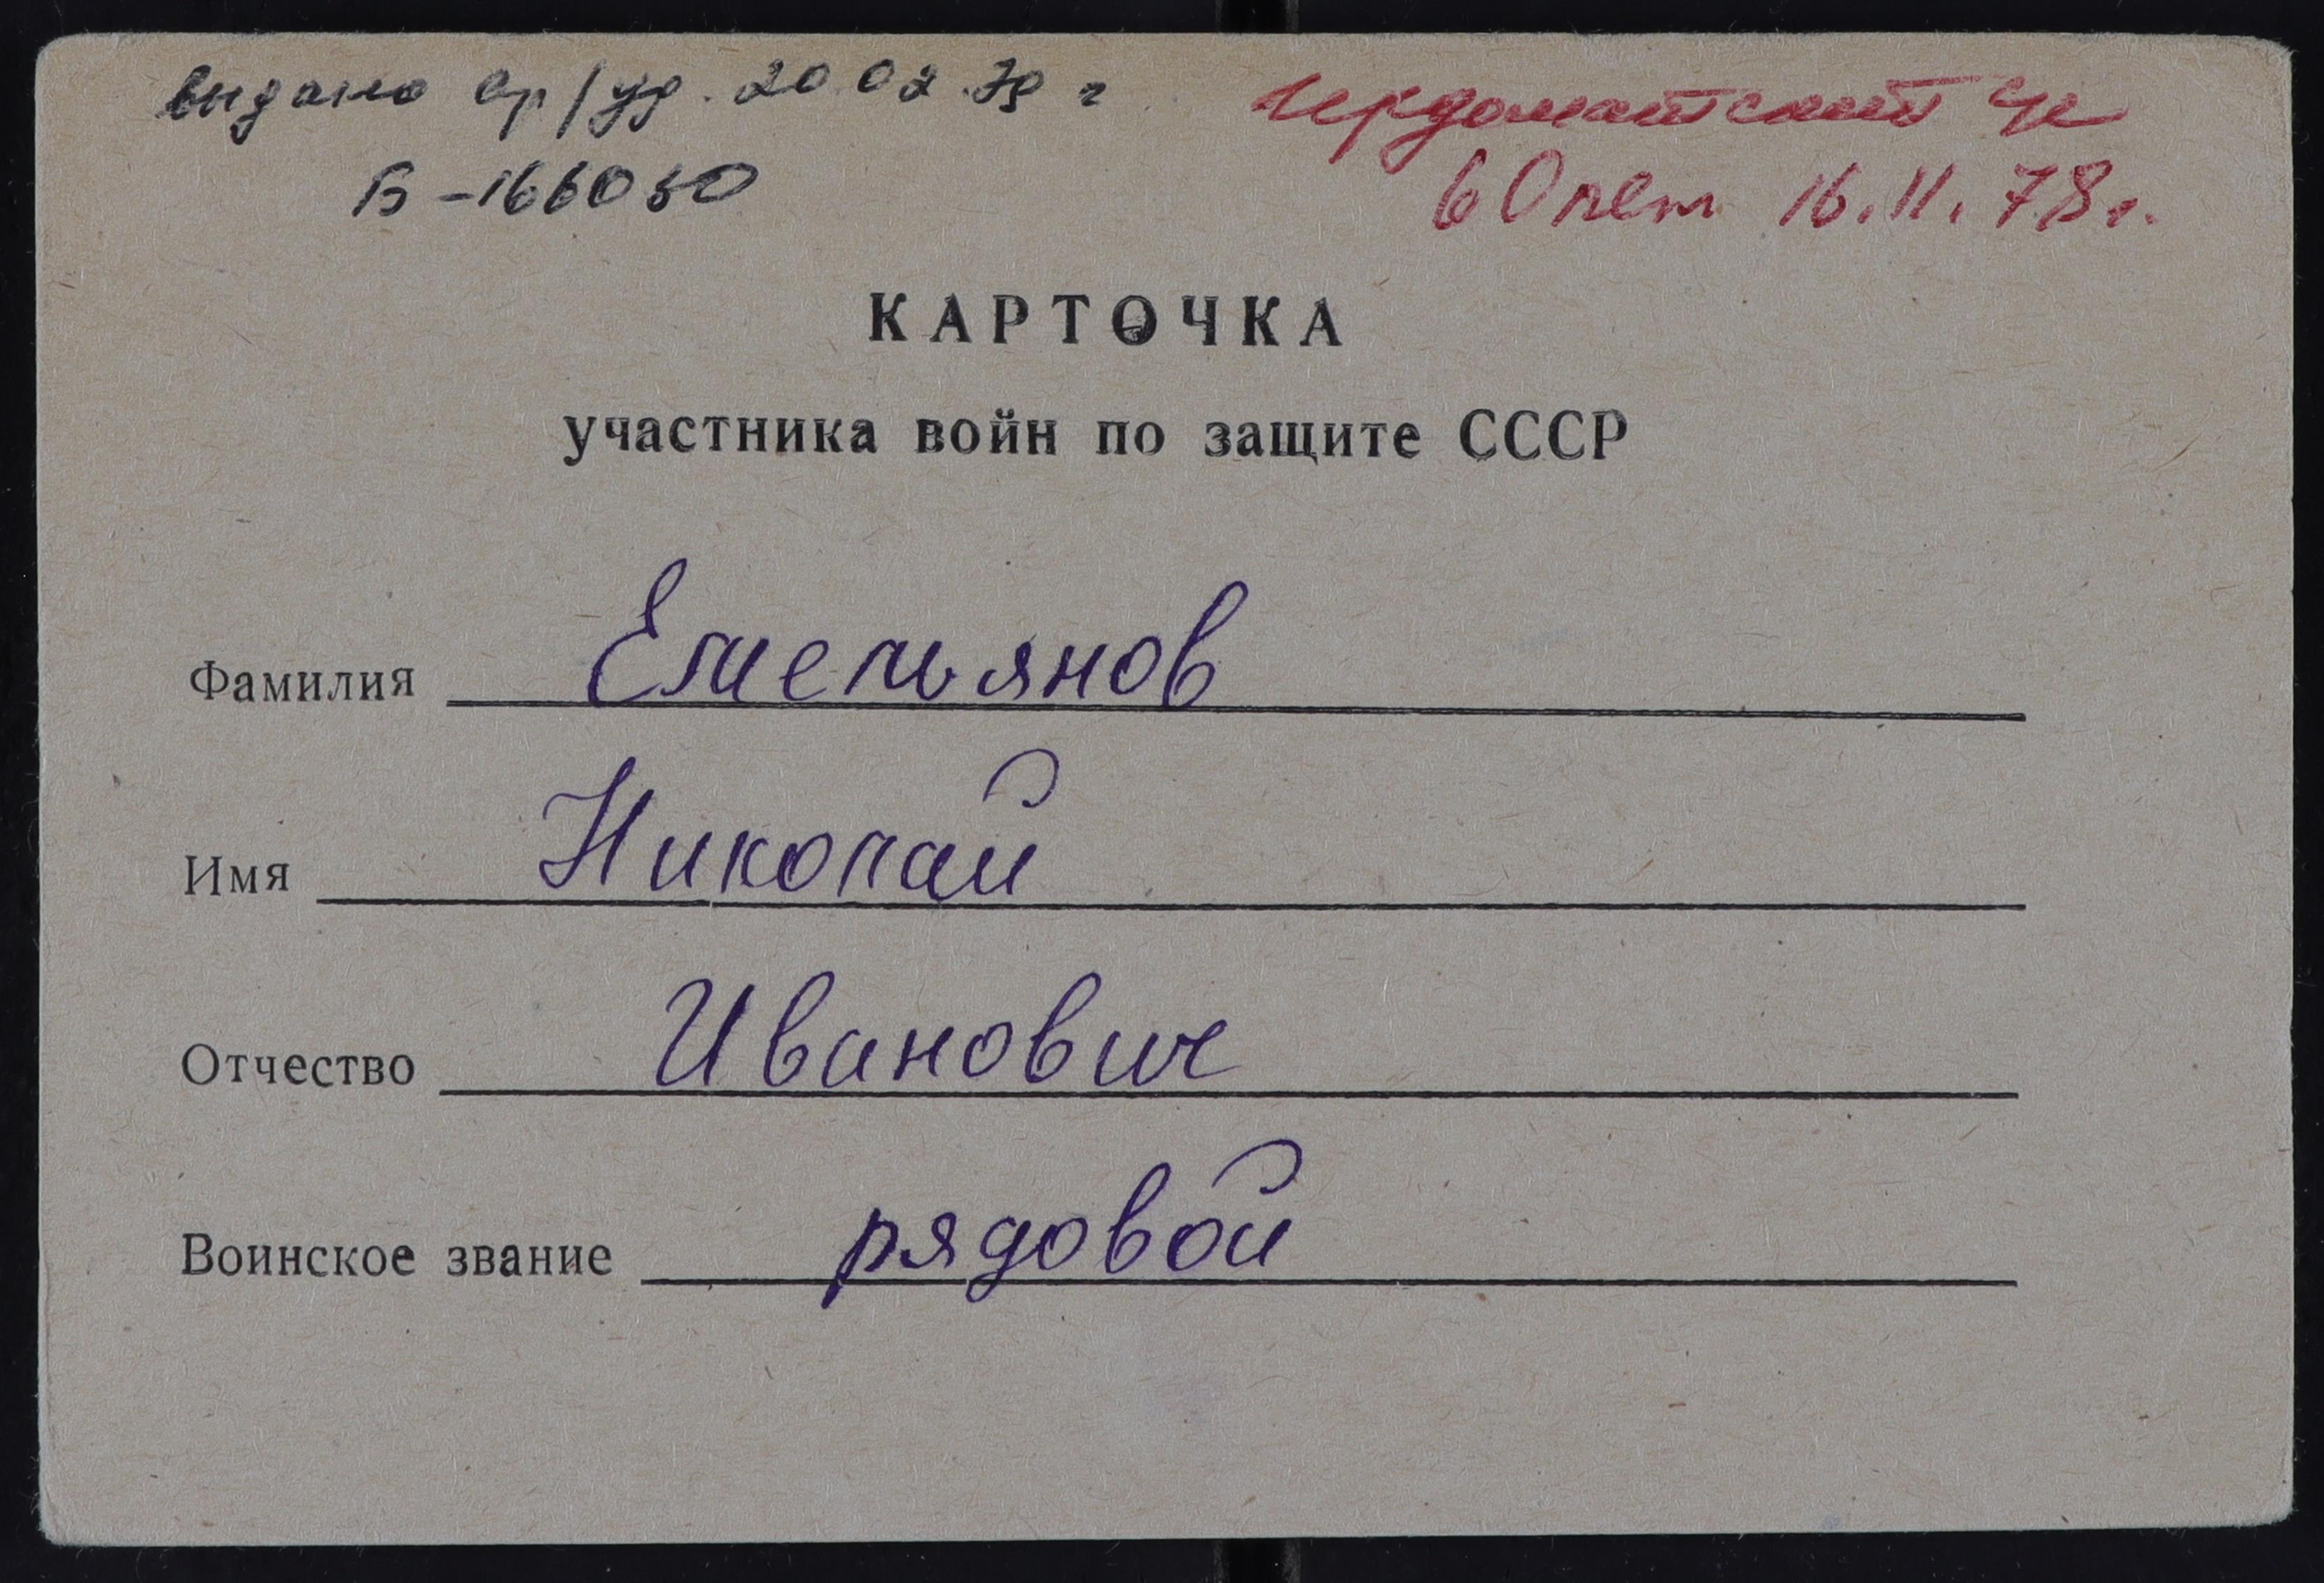 выдано вр/уд. 20.02.79 г
Б-166050
60 лет 16.11.78 г.
КАРТОЧКА
участника войн по защите СССР
Фамилия Емельянов
Имя Николай
Отчество Иванович
Воинское звание рядовой